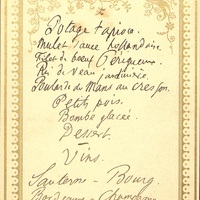 Potage tapioca.
Mulet sauce hollandaise
Filet de boeuf Périgueux.
Ris de veau jardinière.
Poularde du Mans au cresson.
Petits pois.
Bombe glacée.
Dessert.
Vins.
Sauterne - Bourg.
Bordeaux - Champagne